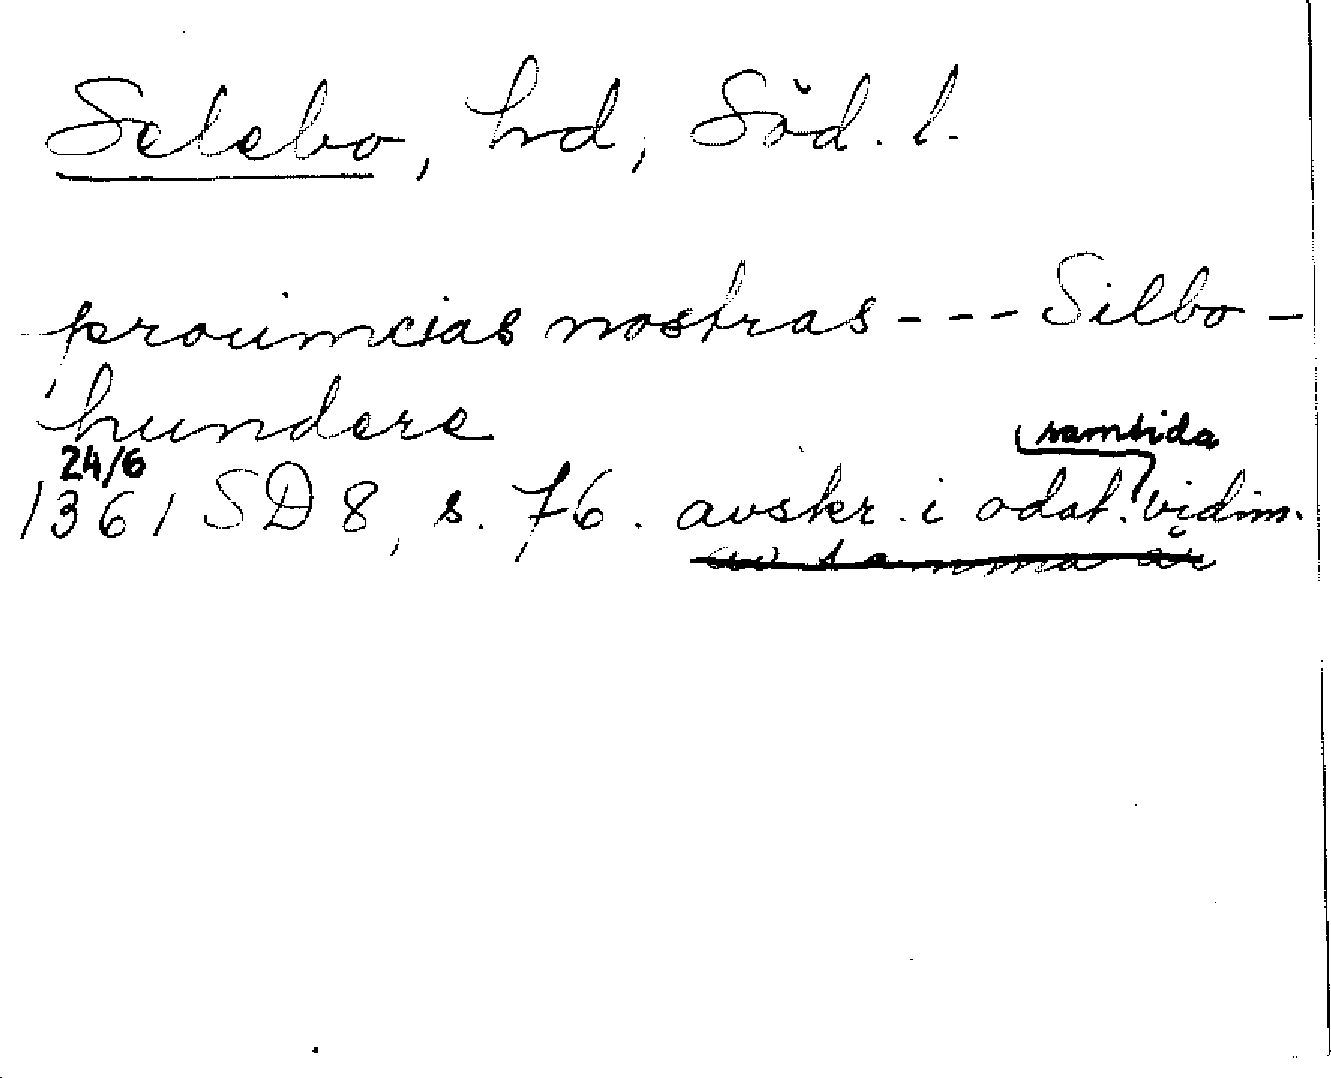 Selebo, hd, Söd. l.
prouincias nostras --- Silbo-
hundere
24/6
samtida
1361 SD 8, s. 76. avskr. i odat. vidim.
av samma år